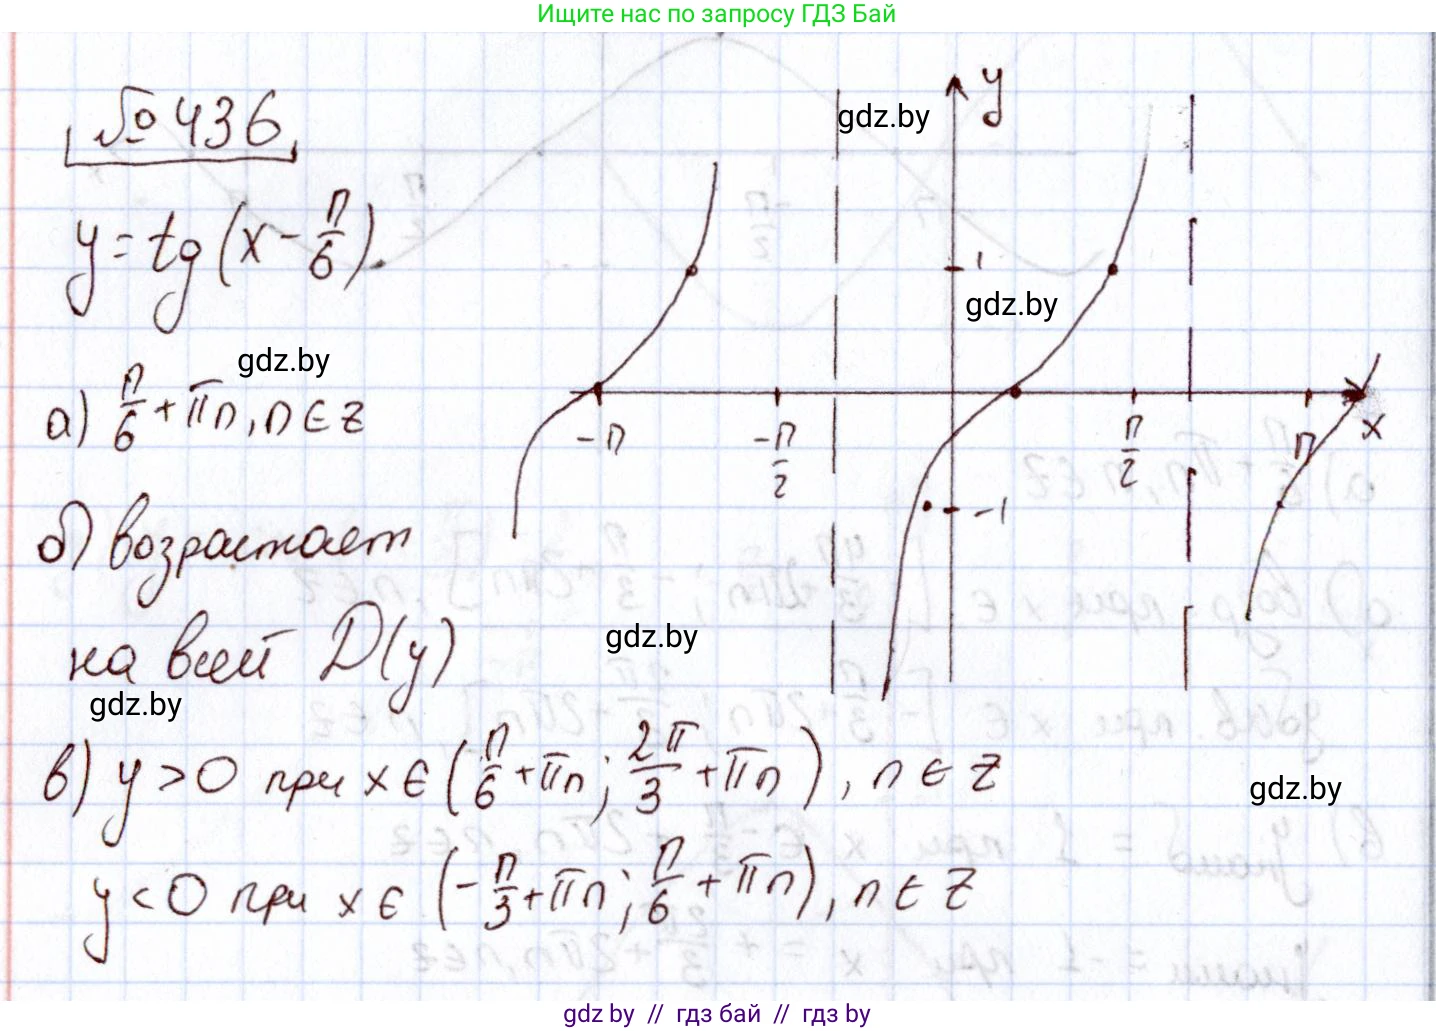 Ищите нас по запросу ГДЗ Бай
№ 436
y = tg(x - π/6).
a) π/6 + πn, n ∈ Z
б) возрастает
на всей D(y)
в) y > 0 при x ∈ (π/6 + πn; 2π/3 + πn), n ∈ Z
y < 0 при x ∈ (-π/3 + πn; π/6 + πn), n ∈ Z
y
1
-π
-π/2
π/2
π
x
-1
gdz.by
gdz.by
gdz.by
gdz.by
gdz.by
gdz.by
gdz by // гдз бай // гдз by